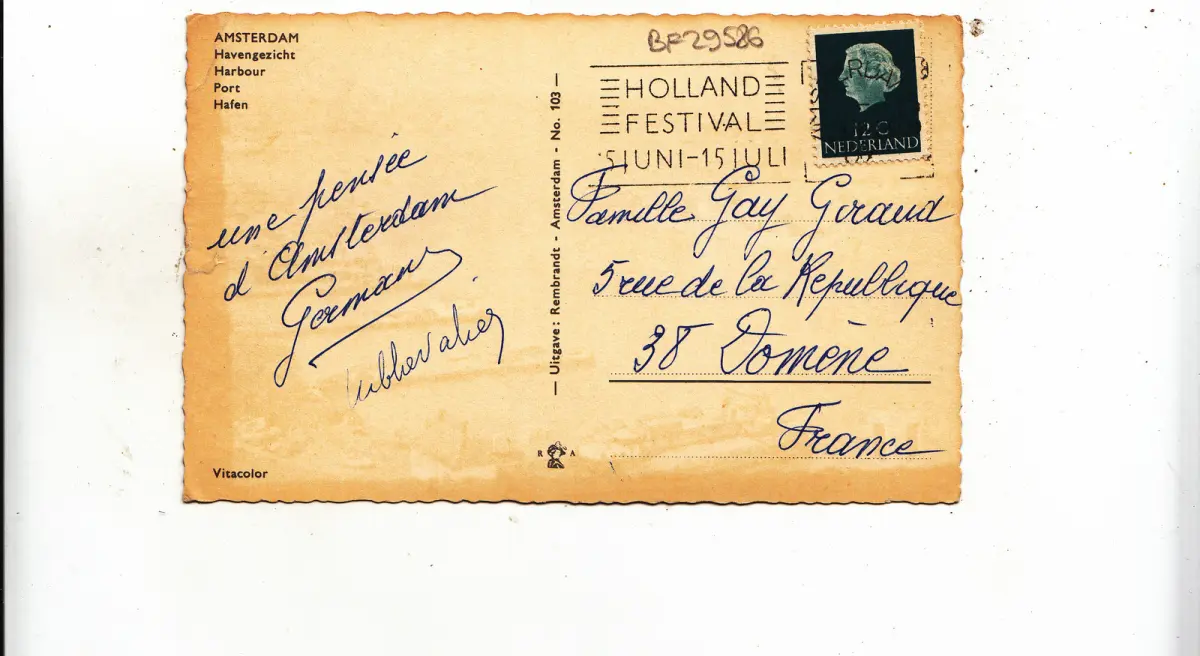 AMSTERDAM
Havengezicht
Harbour
Port
Hafen
une pensée
d'Amsterdam
Germaine
Vitacolor
— Uitgave: Rembrandt - Amsterdam - No. 103 —
R A
BF29586
HOLLAND
FESTIVAL
15 JUNI-15 JULI
12 C
NEDERLAND
Famille Gay Giraud
5 rue de la Republique
38 Domène
France